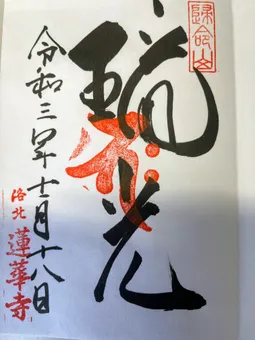 歸命山
瑞光
令和三年十一月十八日
洛北 蓮華寺